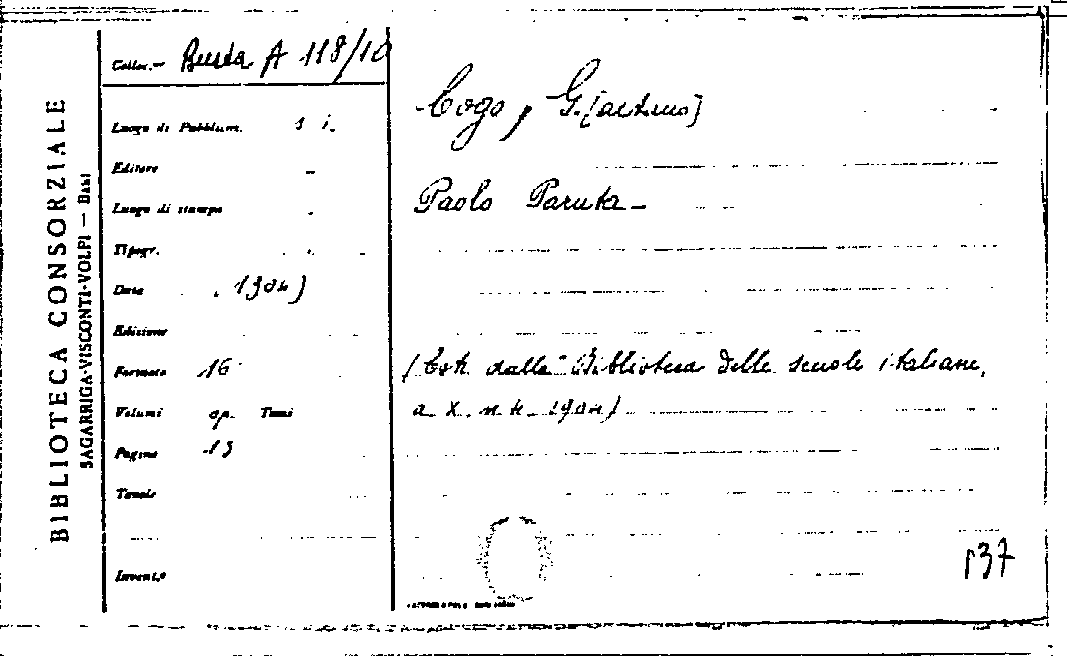 BIBLIOTECA CONSORZIALE
SAGARRIGA-VISCONTI-VOLPI — BARI
Colloc.— Busta A 118/10
Luogo di Pubblicaz. s i.
Editore
Luogo di stampa
Tipogr.
Data 1904)
Edizione
Formato 16°
Volumi op. Tomi
Pagine 13
Tavole
Invent.o
Cogo, G.[aetano]
Paolo Paruta—
(Estr. dalla "Biblioteca delle scuole italiane,
a. X. n. 4. 1904)
137